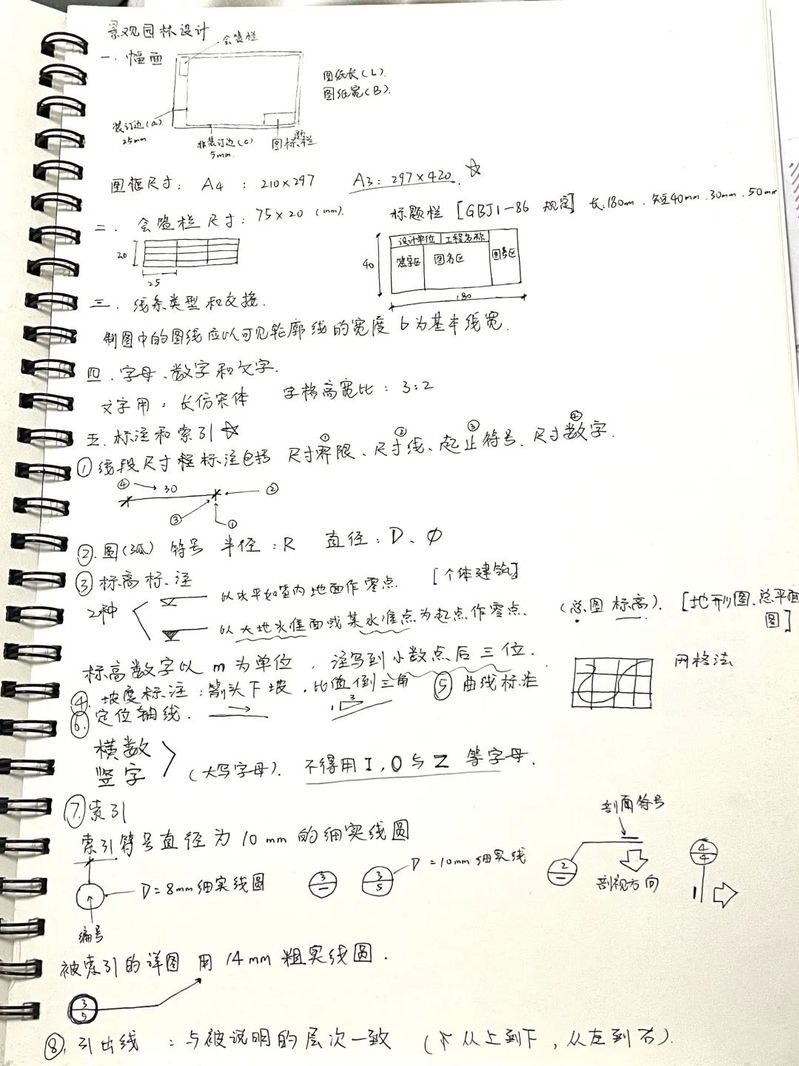 景观园林设计
一. 幅面
会签栏
图纸长(L).
图纸宽(B).
装订边(a)
25mm
非装订边(c)
5mm
图标栏
图框尺寸: A4 : 210×297 A3: 297×420. ☆
二. 会签栏尺寸: 75×20 (mm).
标题栏 [GBJ1-86 规定] 长.180m . 短40mm .30mm . 50mm
20
25
设计单位 工程名称
签字区 图名区 图号区
40
180
三. 线条类型和交接.
制图中的图线应以可见轮廓线的宽度 b 为基本线宽.
四. 字母、数字和文字.
文字用: 长仿宋体 字格高宽比: 3:2
五. 标注和索引 ☆
① 线段尺寸 标注包括 尺寸界限、尺寸线、起止符号、尺寸数字.
① ② ③ ④
④ 30 ②
③ ①
②. 圆(弧) 符号 半径: R 直径: D、Ø
③ 标高标注
2种
以水平如室内地面作零点. [个体建筑]
以大地水准面或某水准点为起点作零点. (总图标高). [地形图、总平面图]
标高数字以 m 为单位, 注写到小数点后三位.
④. 坡度标注: 箭头下坡. 比值倒三角 ⑤ 曲线标注 网格法
1 3
⑥. 定位轴线.
横数
竖字
(大写字母). 不得用 I, O 与 Z 等字母.
⑦. 索引
索引符号直径为 10 mm 的细实线圆
D = 8mm细实线圆
编号
3
—
3
5
D = 10mm 细实线
剖面符号
2
—
剖视方向
4
4
1
被索引的详图 用 14 mm 粗实线圆.
3
5
⑧. 引出线 : 与被说明的层次一致 (从上到下, 从左到右).